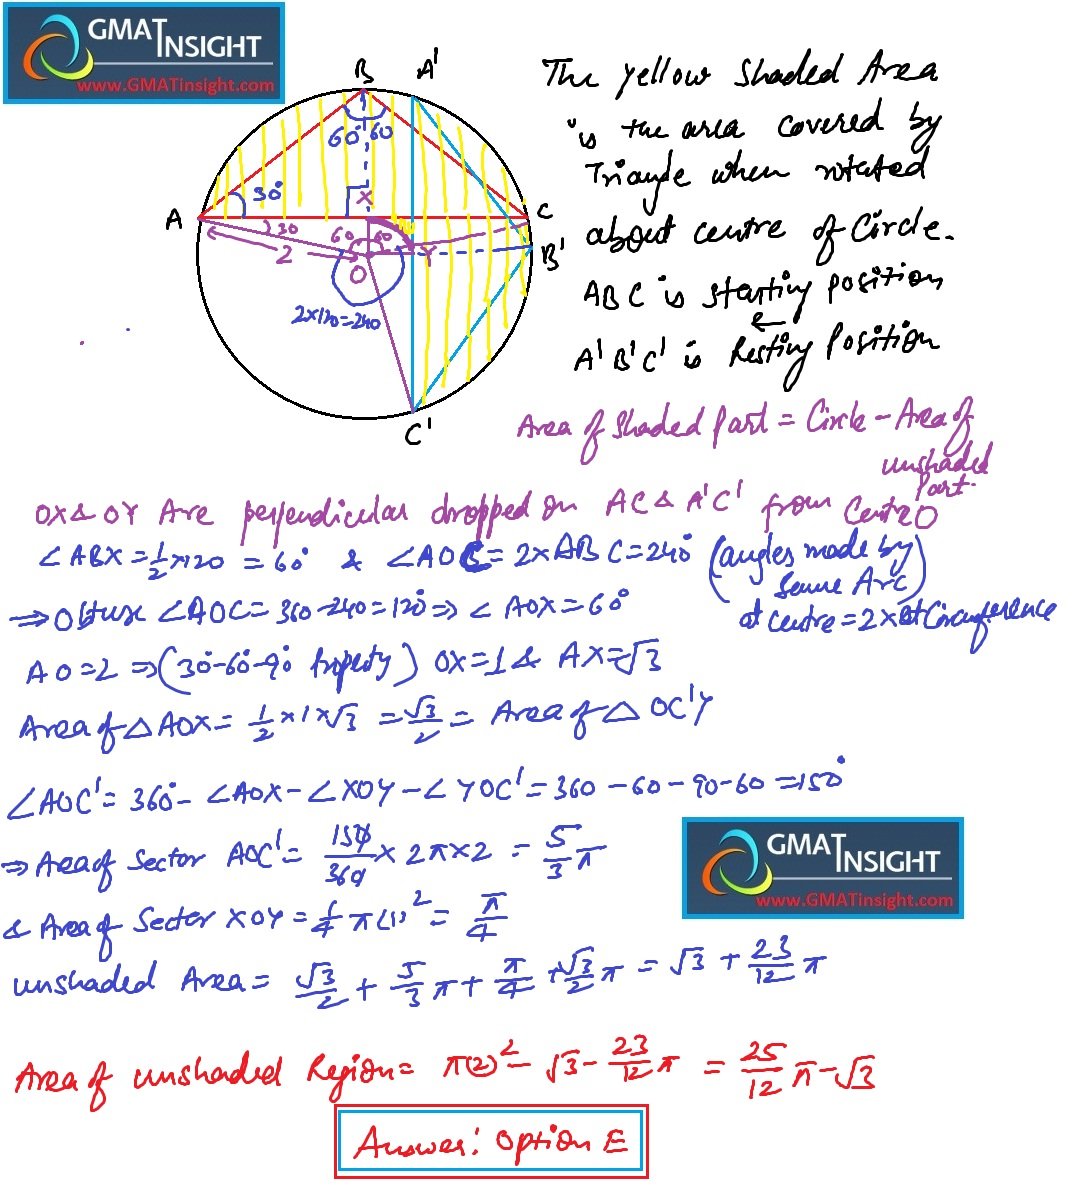 GMAT INSIGHT
www.GMATinsight.com
B A'
60° 60
30°
X
A C
30 60 60 Y B'
2 O
2×120=240
C'
The yellow Shaded Area
is the area covered by
Triangle when rotated
about centre of Circle.
ABC is starting position
A'B'C' is Resting Position
Area of Shaded Part = Circle - Area of
unshaded
Part.
OX & OY Are perpendicular dropped on AC & A'C' from Centre O
∠ABX = 1/2 × 120 = 60° & ∠AOC = 2×ABC = 240° (angles made by
Same Arc)
at centre = 2× at Circumference
⇒ Obtuse ∠AOC = 360-240 = 120° ⇒ ∠AOX = 60°
AO = 2 ⇒ (30-60-90 Property) OX = 1 & AX = √3
Area of △AOX = 1/2 × 1 × √3 = √3/2 = Area of △OC'Y
∠AOC' = 360° - ∠AOX - ∠XOY - ∠YOC' = 360 - 60 - 90 - 60 = 150°
⇒ Area of Sector AOC' = 150/360 × 2π×2 = 5/3 π
GMAT INSIGHT
www.GMATinsight.com
& Area of Sector XOY = 1/4 π(1)² = π/4
unshaded Area = √3/2 + 5/3 π + π/4 + √3/2 π = √3 + 23/12 π
Area of unshaded Region = π(2)² - √3 - 23/12 π = 25/12 π - √3
Answer: Option E